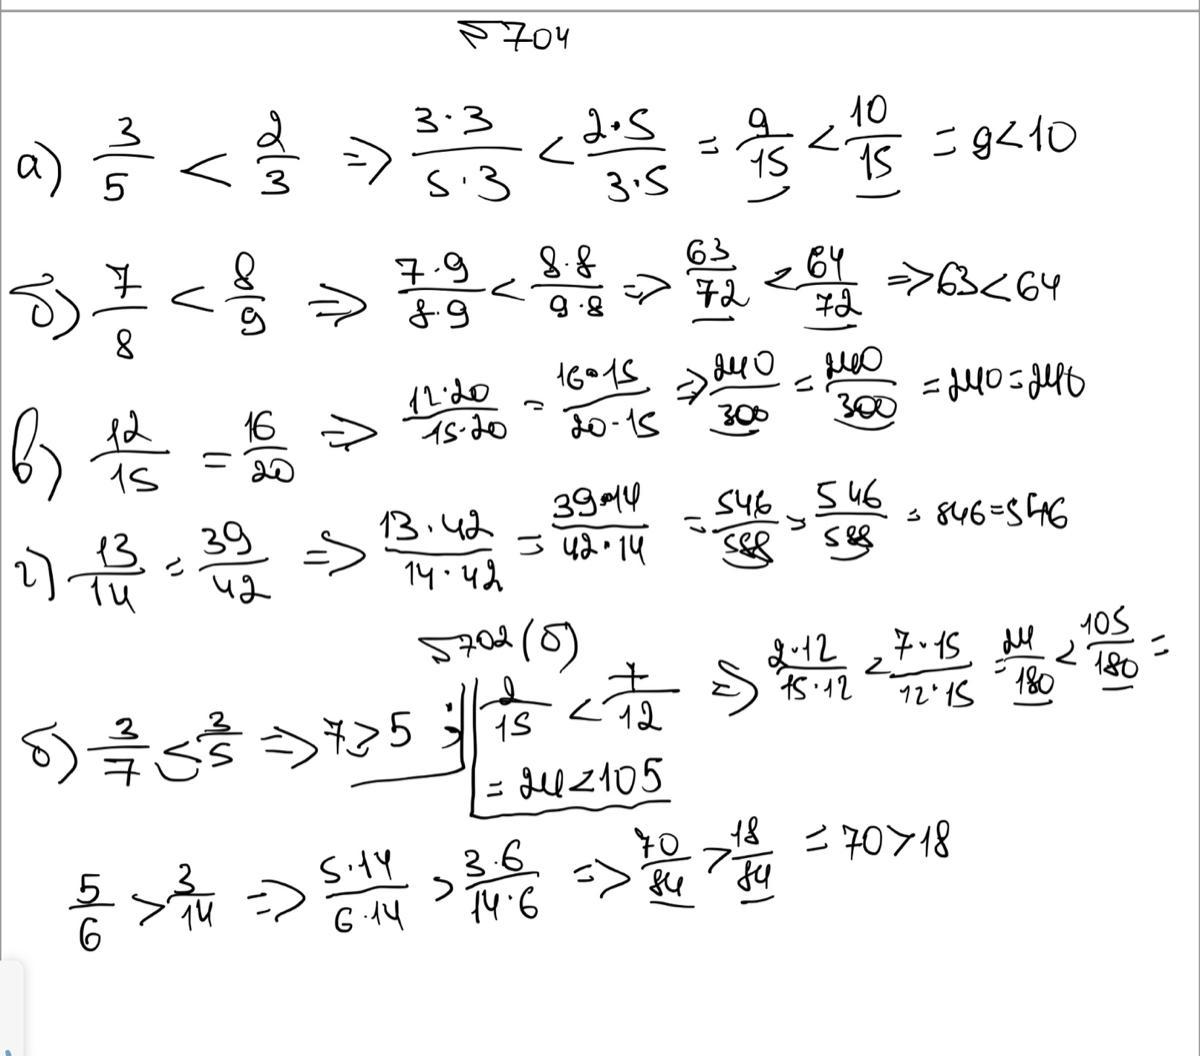 № 704
а) 3/5 < 2/3 => 3·3/5·3 < 2·5/3·5 = 9/15 < 10/15 = 9<10
б) 7/8 < 8/9 => 7·9/8·9 < 8·8/9·8 => 63/72 < 64/72 => 63<64
в) 12/15 = 16/20 => 12·20/15·20 = 16·15/20·15 => 240/300 = 240/300 = 240=240
г) 13/14 = 39/42 => 13·42/14·42 = 39·14/42·14 = 546/588 = 546/588 = 846=546
№ 702 (б)
б) 3/7 < 3/5 => 7>5 ; 2/15 < 7/12 => 2·12/15·12 < 7·15/12·15 = 24/180 < 105/180 =
= 24<105
5/6 > 3/14 => 5·14/6·14 > 3·6/14·6 => 70/84 > 18/84 = 70>18